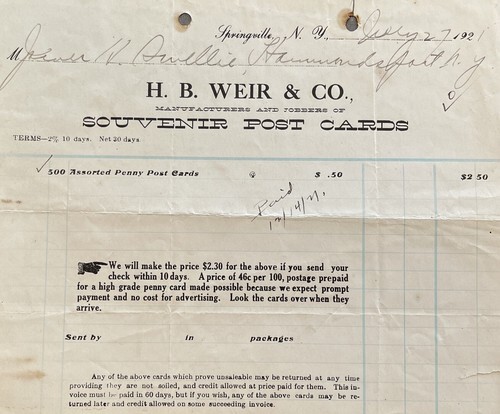 Springville, N. Y., July 27 1921
M Hammondsport N. Y
H. B. WEIR & CO.,
MANUFACTURERS AND JOBBERS OF
SOUVENIR POST CARDS
TERMS—2% 10 days. Net 30 days
500 Assorted Penny Post Cards @ $ .50 $2 50
Paid
12/14/21.
We will make the price $2.30 for the above if you send your
check within 10 days. A price of 46c per 100, postage prepaid
for a high grade penny card made possible because we expect prompt
payment and no cost for advertising. Look the cards over when they
arrive.
Sent by in packages
Any of the above cards which prove unsaleable may be returned at any time
providing they are not soiled, and credit allowed at price paid for them. This in-
voice must be paid in 60 days, but if you wish, any of the above cards may be re-
turned later and credit allowed on some succeeding invoice.